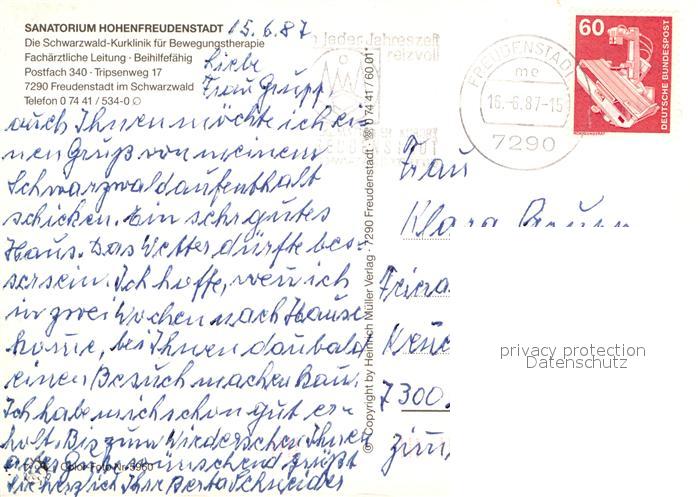 SANATORIUM HOHENFREUDENSTADT
Die Schwarzwald-Kurklinik für Bewegungstherapie
Fachärztliche Leitung · Beihilfefähig
Postfach 340 · Tripsenweg 17
7290 Freudenstadt im Schwarzwald
Telefon 0 74 41 / 534-0
15.6.87
Liebe
Frau Grupp
auch Ihnen möchte ich ei-
nen Gruß von meinem
Schwarzwaldaufenthalt
schicken. Ein sehr gutes
Haus. Das Wetter dürfte bes-
ser sein. Ich hoffe, wenn ich
in zwei Wochen nach Hause
komme, bei Ihnen dan bald
einen Besuch machen kan.
Ich habe mich schon gut er-
holt. Bis zum Wiedersehen Ihnen
alles Gute wünschend grüßt
Sie herzlich Ihre Berta Schneider
Color-Foto Nr. 5960
© Copyright by Heinrich Müller Verlag · 7290 Freudenstadt · ☎ 0 74 41 / 60 01
in jeder Jahreszeit
reizvoll
FREUDENSTADT
FREUDENSTADT
mc
16.-6.87-15
7290
60
DEUTSCHE BUNDESPOST
Frau
Klara
7300
privacy protection
Datenschutz